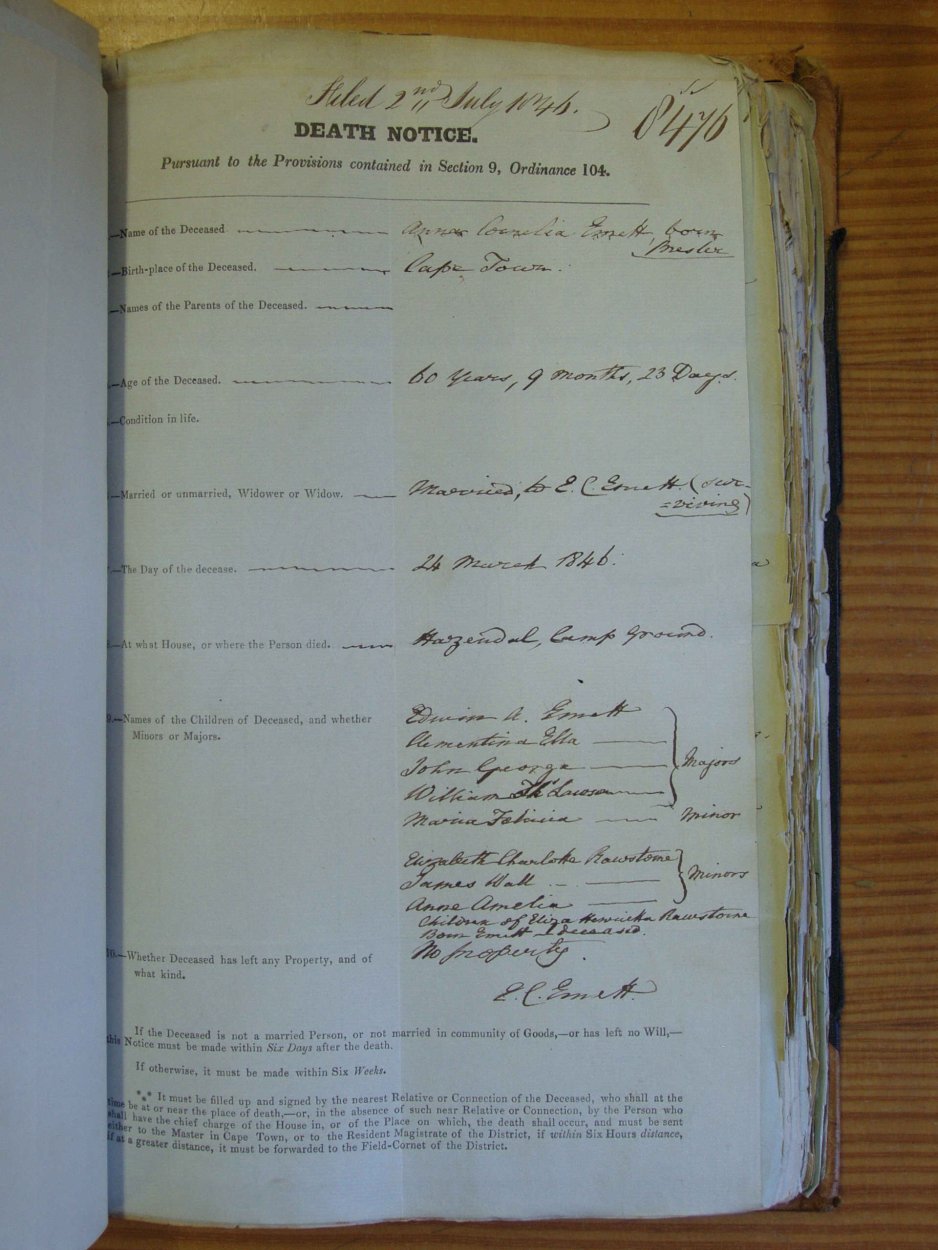 Filed 2nd July 1846.
8476
DEATH NOTICE.
Pursuant to the Provisions contained in Section 9, Ordinance 104.
—Name of the Deceased Anna Cornelia Emett born
Mesler
—Birth-place of the Deceased. Cape Town.
—Names of the Parents of the Deceased.
—Age of the Deceased. 60 Years, 9 Months, 23 Days.
—Condition in life.
—Married or unmarried, Widower or Widow. Married, to E. C. Emett (sur-
=viving)
—The Day of the decease. 24 March 1846.
—At what House, or where the Person died. Hazendal, Camp Ground.
9.—Names of the Children of Deceased, and whether Edwin A. Emett
Minors or Majors. Clementina Ella
John George Majors
William Ths Lawson
Maria Minor
Elizabeth Charlotte Rawstorne
James Wall Minors
Anne Amelia
Children of Eliza Rawstorne
Born Emett deceased.
10.—Whether Deceased has left any Property, and of No property.
what kind.
E. C. Emett
If the Deceased is not a married Person, or not married in community of Goods,—or has left no Will,—
this Notice must be made within Six Days after the death.
If otherwise, it must be made within Six Weeks.
*** It must be filled up and signed by the nearest Relative or Connection of the Deceased, who shall at the
time be at or near the place of death,—or, in the absence of such near Relative or Connection, by the Person who
shall have the chief charge of the House in, or of the Place on which, the death shall occur, and must be sent
either to the Master in Cape Town, or to the Resident Magistrate of the District, if within Six Hours distance,
if at a greater distance, it must be forwarded to the Field-Cornet of the District.